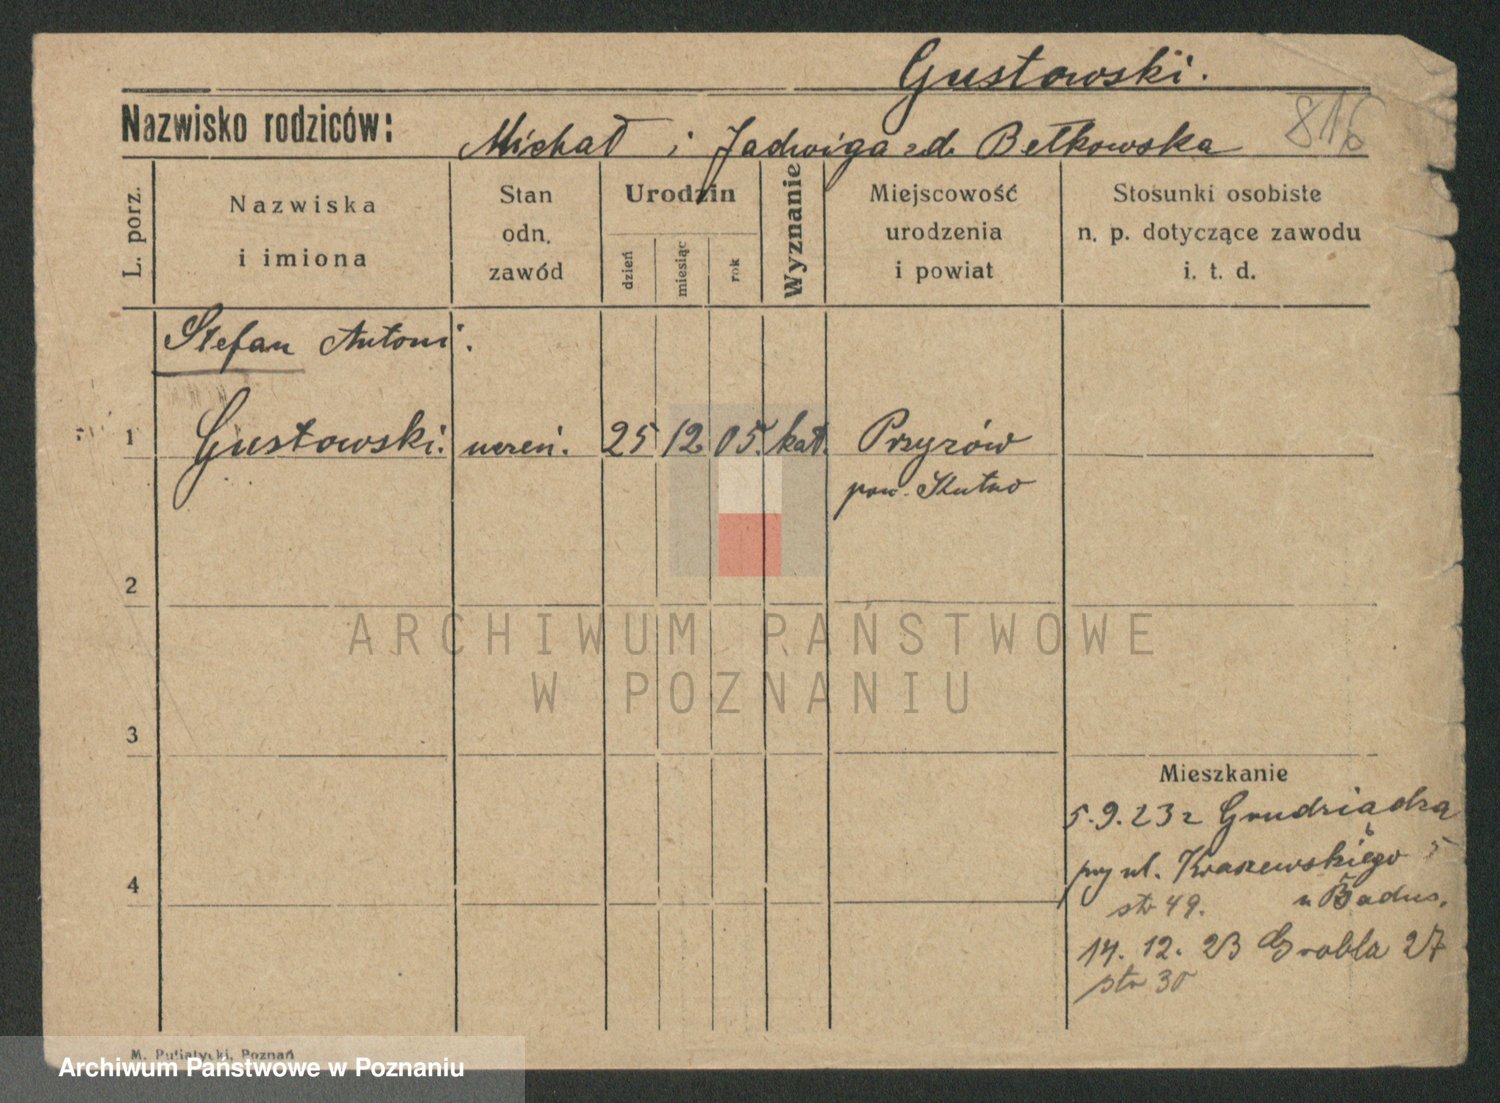 Gustowski.
816
Nazwisko rodziców: Michał i Jadwiga zd. Bełkowska
L. porz.
Nazwiska
i imiona
Stan
odn.
zawód
Urodzin
dzień
miesiąc
rok
Wyznanie
Miejscowość
urodzenia
i powiat
Stosunki osobiste
n. p. dotyczące zawodu
i. t. d.
Stefan Antoni.
1 Gustowski. uczeń. 25 12 05. kat. Przyzów
pow. Kutno
2
ARCHIWUM PAŃSTWOWE
W POZNANIU
3
Mieszkanie
5.9.23 z Grudziądza
przy ul. Kraszewskiego 5
4
str 49. u Badus.
14. 12. 23 Grobla 27
str 30
M. Putiatycki, Poznań
Archiwum Państwowe w Poznaniu